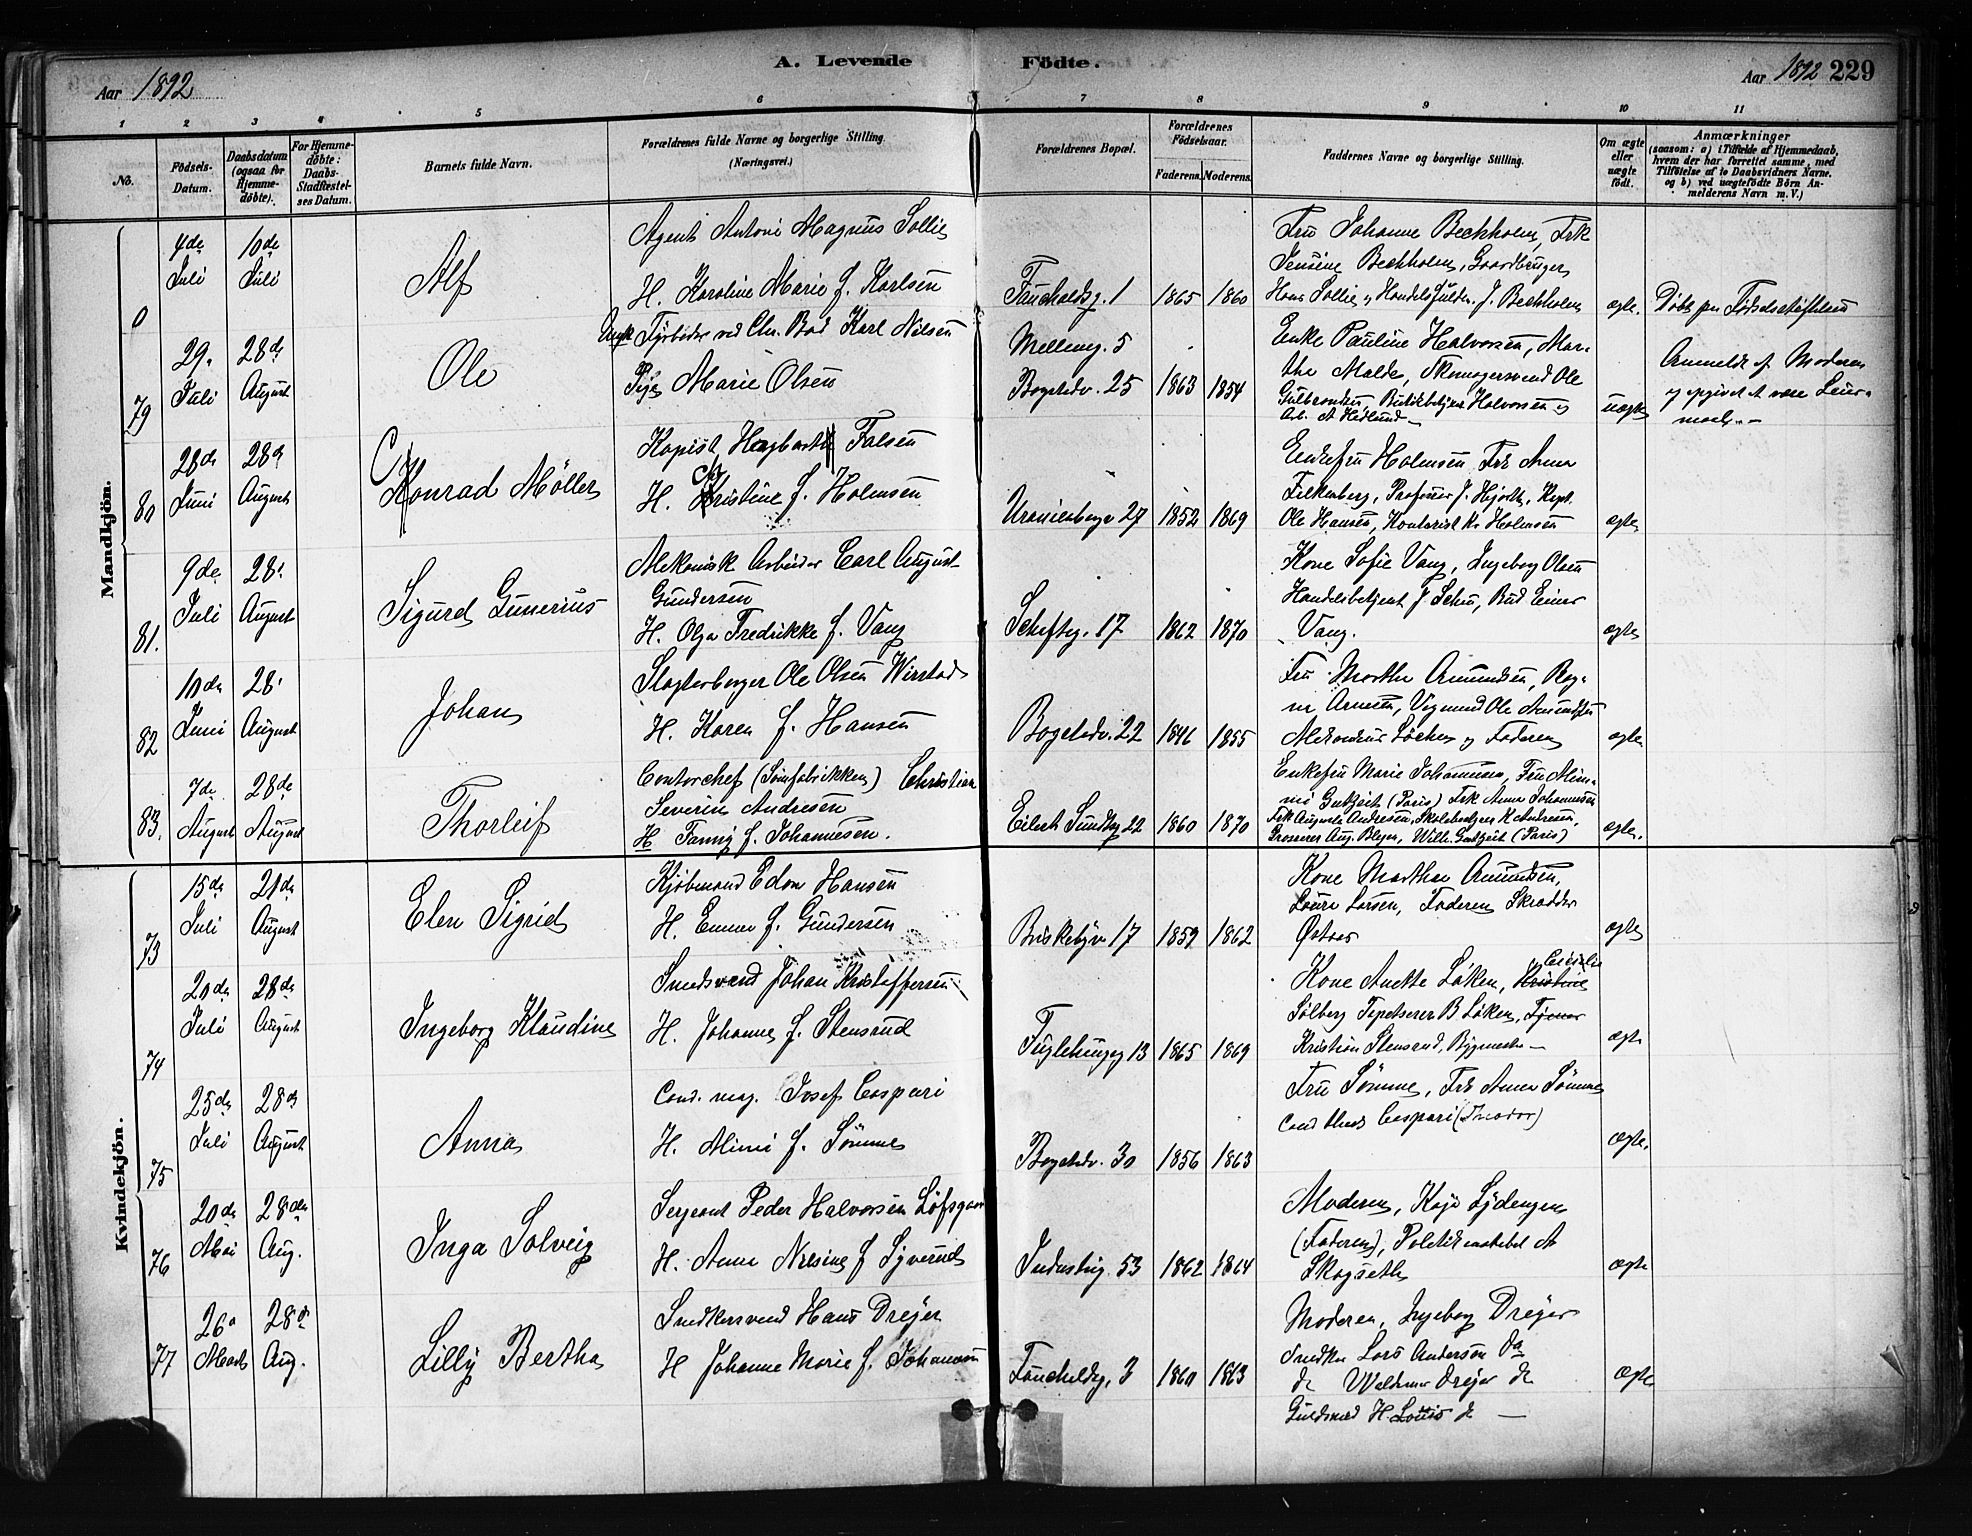 Aar 1892
A. Levende Födte.
Aar 1892 229
1 2 3 4 5 6 7 8 9 10 11
No.
Födsels-Datum.
Daabsdatum (ogsaa for Hjemme-döbte).
For Hjemme-döbte: Daabs-Stadfæstel-ses Datum.
Barnets fulde Navn.
Forældrenes fulde Navne og borgerlige Stilling. (Næringsvei.)
Forældrenes Bopæl.
Forældrenes Födselsaar.
Faderens. Moderens.
Faddernes Navne og borgerlige Stilling.
Om ægte eller uægte födt.
Anmærkninger
(saasom: a) i Tilfælde af Hjemmedaab, hvem der har forrettet samme, med Tilföielse af to Daabsvidners Navne. og b) ved uægtefödte Börn An-melderens Navn m. V.)
Mandkjön.
0
4de Juli
10de Juli
Alf
Agent Antoni Magnus Sollie
H. Karoline Marie f. Karlsen
Fauchaldsg. 1
1865 1860
Fru Johanne Beckholm, Frk
Jensine Beckholm, Gaardbruger
Hans Sollie og Handelsfuldm. J. Beckholm
ægte.
Döbt paa Fødselsstiftelsen
79
29. Juli
28de August
Ole
Ungk Fyrböder ved Chr. Bad Karl Nilsen
Pige Marie Olsen
Melleng. 5
Bogstadv. 25
1863 1854
Enke Pauline Halvorsen, Mar-
the Malde, Skomagersvend Ole
Gulbrandsen, Butikbetjent Halvorsen og
Arb. A Hedlund
uægte
Anmeldt af Moderen
og opgivet at være Leier-
maal
80
28de Juni
28de August
Konrad Möller
Kopist Hagbarth Falsen
H. Kristine f. Holmsen
Uranienborgv 27
1852 1869
Enkefru Holmsen Frk Anna
Falkenberg, Professor J. Hjorth, Kapt.
Ole Hansen, Kontorist Kr Holmsen
ægte
81.
9de Juli
28. August
Sigurd Gunerius
Mekanisk Arbeider Carl August
Gundersen
H. Olga Fredrikke f. Vang
Schiftg. 17
1862 1870
Kone Sofie Vang, Ingeborg Olsen
Handelsbetjent J. Schu, Bud Einar
Vang.
ægte
82
10de Juni
28. August
Johan
Slagterborger Ole Olsen Wirstad
H. Karen f. Hansen
Bogstadv. 22
1846 1855
Fru Marthe Amundsen, Rag-
na Arnesen, Vigmund Ole Amundsen
Alexander Löken og Faderen
ægte
83.
7de August
28de August
Thorleif
Contorchef (Sömfabrikken) Christian
Severin Andresen
H Fanny f. Johannesen.
Eilert Sundtsg 22
1860 1870
Enkefru Marie Johannesen, Fru Mim-
mi Gutzeit (Paris) Frk Anna Johannesen
Frk Augusta Andresen, Skolebestyrer K Andresen,
Grosserer Aug. Bleyer, Wilh. Gutzeit (Paris)
ægte.
Kvindekjön.
73
15de Juli
21de August
Elen Sigrid
Kjöbmand Edon Hansen
H. Emma f. Gundersen
Briskebyv 17
1859 1862
Kone Marthe Amundsen,
Laura Larsen, Faderen Skrædder
Østaas
ægte
74
20de Juli
28de August
Ingeborg Klaudine
Smedsvend Johan Kristoffersen
H. Johanne f. Stensrud
Fuglehaugg 13
1865 1869
Kone Anette Löken, Kristine Cecilie
Solberg Tapetserer B Löken, Tjener
Kristian Stensrud, Bygmester
ægte
75
25de Juli
28de August
Anna
Cand. mag. Josef Caspari
H. Mimi f. Sömme
Bogstadv. 30
1856 1863
Fru Sömme, Frk Anna Sömme
Cand theol Caspari (Theodor)
ægte.
76
20de Mai
28de Aug.
Inga Solveig
Sergeant Peder Halvorsen Löfsgaard
H. Anna Nilsine f Syverud
Industrig. 53
1862 1864
Moderen, Kaja Lydengen
(Faderen), Politikonstabel A
Skogseth
ægte
77
26 Marts
28de Aug.
Lilly Bertha
Snedkersvend Hans Dreyer
H Johanne Marie f. Johansen
Fauchaldsg. 3
1860 1863
Moderen, Ingeborg Dreyer
Snedker Lars Andersen da
do Waldemar Dreyer do
Guldsmed H. Louis do
ægte